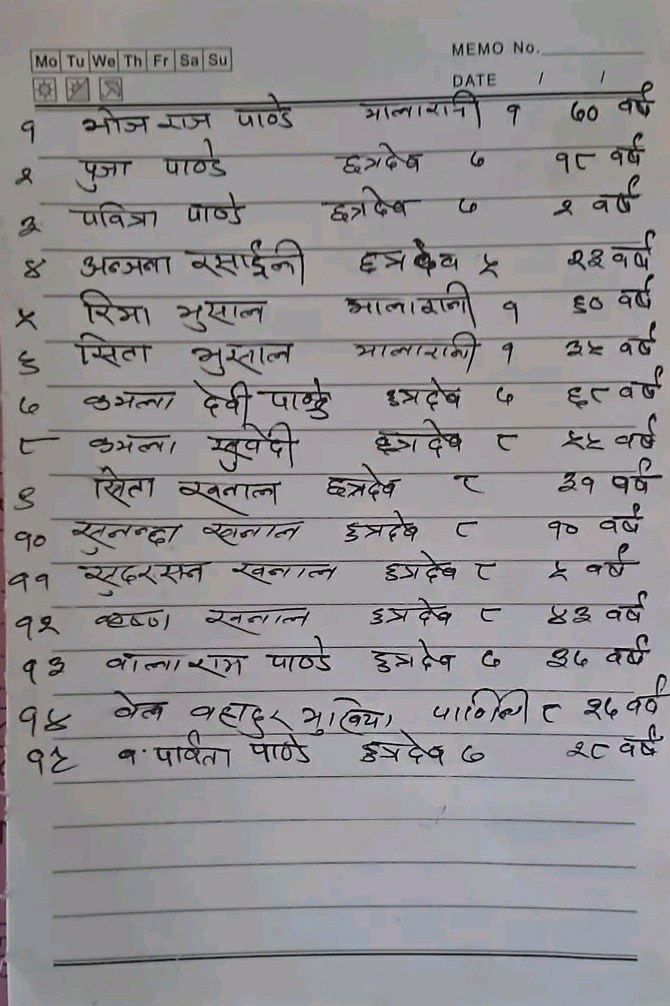 Mo Tu We Th Fr Sa Su
MEMO No.
DATE / /
१ भोज राज पाण्डे मालारानी १ ७० वर्ष
२ पुजा पाण्डे छत्रदेव ७ १८ वर्ष
३ पवित्रा पाण्डे छत्रदेव ७ २ वर्ष
४ अन्जना रसाईली छत्रदेव ५ २३ वर्ष
५ रिमा भुसाल मालारानी १ ६० वर्ष
६ सिता भुसाल मालारानी १ ३५ वर्ष
७ कमला देवी पाण्डे छत्रदेव ७ ६८ वर्ष
८ कमला सुवेदी छत्रदेव ८ ५५ वर्ष
९ सिता खनाल छत्रदेव ८ ३१ वर्ष
१० सुनन्दा खनाल छत्रदेव ८ १० वर्ष
११ सुदरसन खनाल छत्रदेव ८ ५ वर्ष
१२ कृष्णा खनाल छत्रदेव ८ ४३ वर्ष
१३ वालाराम पाण्डे छत्रदेव ७ ३७ वर्ष
१४ वेल वहादुर मुखिया पाणिनी ८ २७ वर्ष
१५ पार्वता पाण्डे छत्रदेव ७ २८ वर्ष